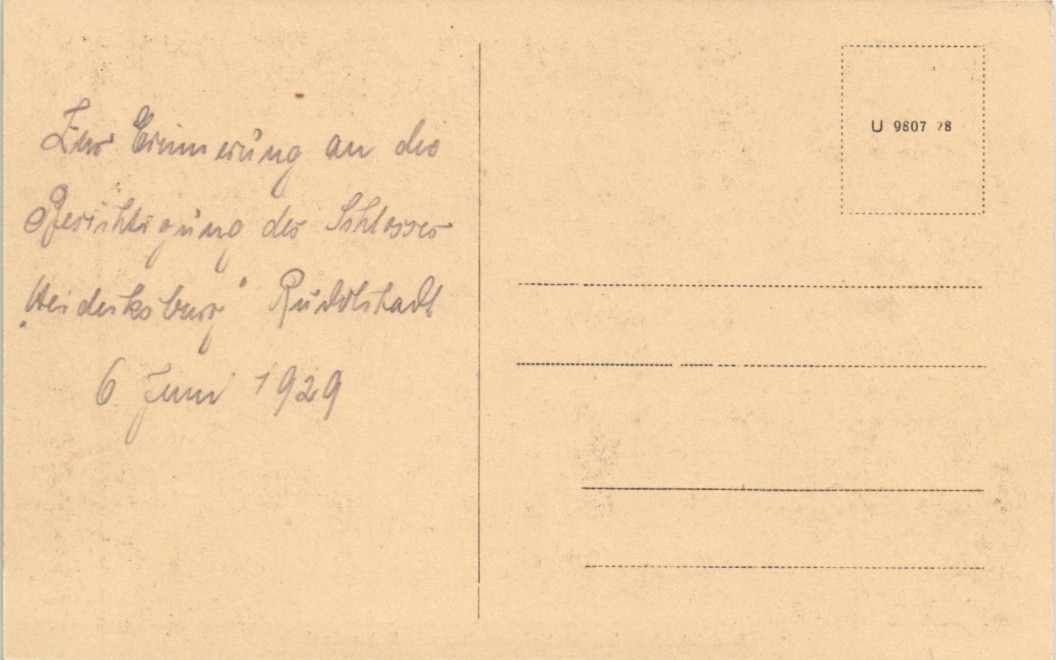 Zur Erinnerung an die
Besichtigung des Schlosses
„Heidecksburg" Rudolstadt
6 Juni 1929
U 9807 28